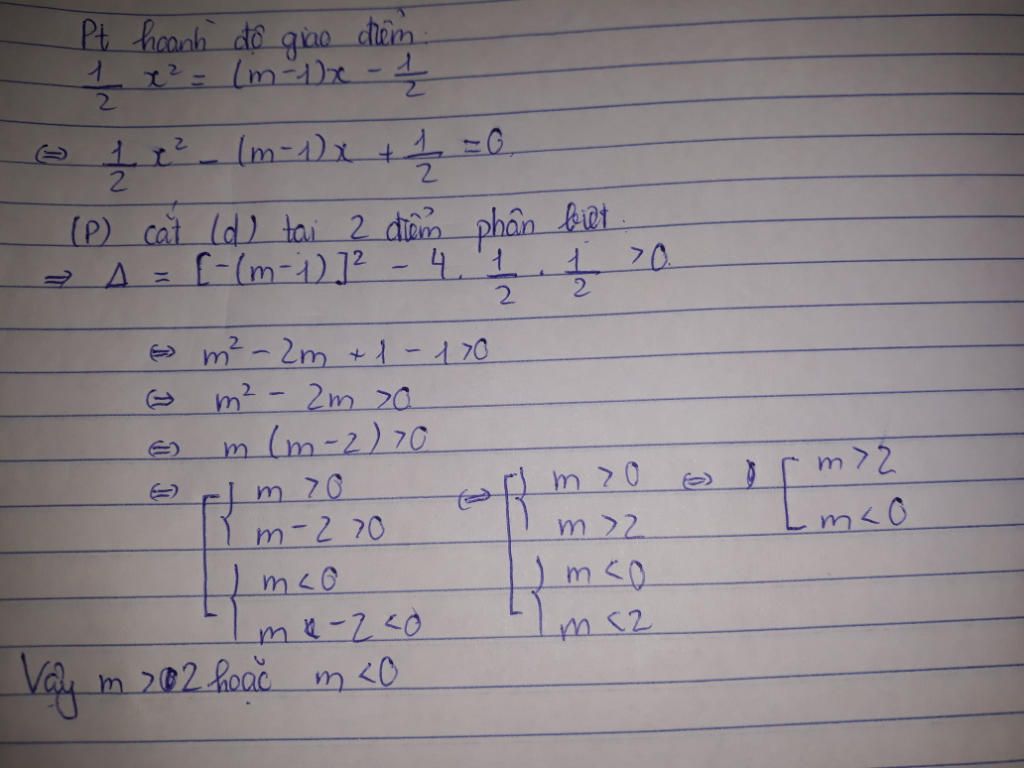 Pt hoành độ giao điểm:
1/2 x² = (m-1)x - 1/2
⇔ 1/2 x² - (m-1)x + 1/2 = 0
(P) cắt (d) tại 2 điểm phân biệt.
⇒ Δ = [-(m-1)]² - 4. 1/2 . 1/2 >0
⇔ m² - 2m + 1 - 1 >0
⇔ m² - 2m >0
⇔ m (m-2) >0
⇔ [ { m >0 ⇔ [ { m >0 ⇔ [ m >2
m-2 >0 m >2 m <0
{ m <0 { m <0
m -2 <0 m <2
Vậy m >2 hoặc m <0